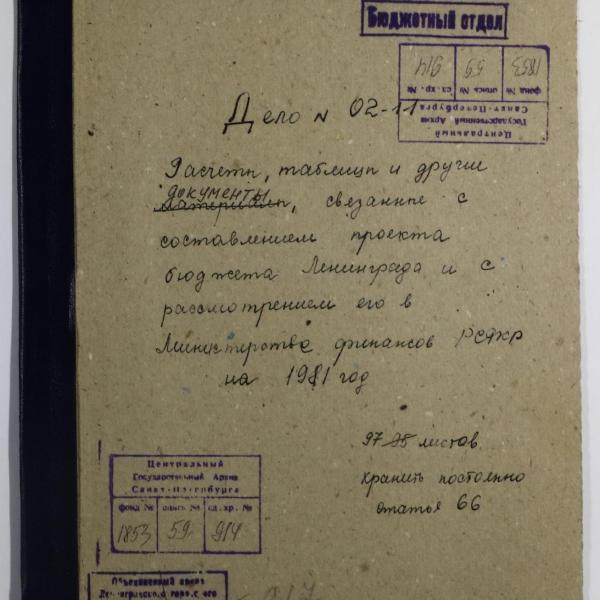 Бюджетный отдел
Центральный
Государственный Архив
Санкт-Петербурга
фонд № опись № ед. хр. №
1853 59 914
Дело № 02-11
Расчеты, таблицы и другие
документы
материалы, связанные с
составлением проекта
бюджета Ленинграда и с
рассмотрением его в
Министерстве финансов РСФСР
на 1981 год
97 95 листов
хранить постоянно
статья 66
Центральный
Государственный Архив
Санкт-Петербурга
фонд № опись № ед. хр. №
1853 59 914
Объединенный архив